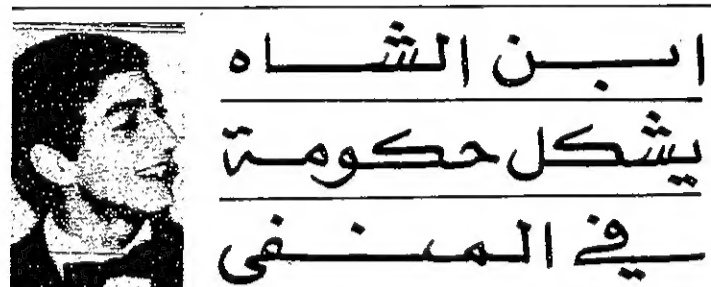 ابن الشاه
يشكل حكومة
في المنفى